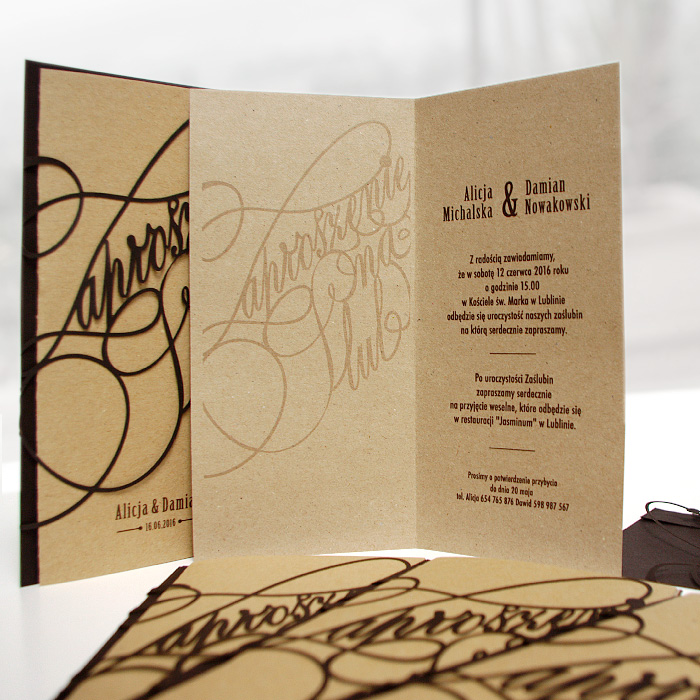 Zaprosz
Alicja & Damia
16.06.2016
Zaproszenie
na
ślub
Alicja Michalska & Damian Nowakowski
Z radością zawiadamiamy,
że w sobotę 12 czerwca 2016 roku
o godzinie 15.00
w Kościele św. Marka w Lublinie
odbędzie się uroczystość naszych zaślubin
na którą serdecznie zapraszamy.
Po uroczystości Zaślubin
zapraszamy serdecznie
na przyjęcie weselne, które odbędzie się
w restauracji "Jasminum" w Lublinie.
Prosimy o potwierdzenie przybycia
do dnia 20 maja
tel. Alicja 654 765 876 Dawid 598 987 567
aproszenie